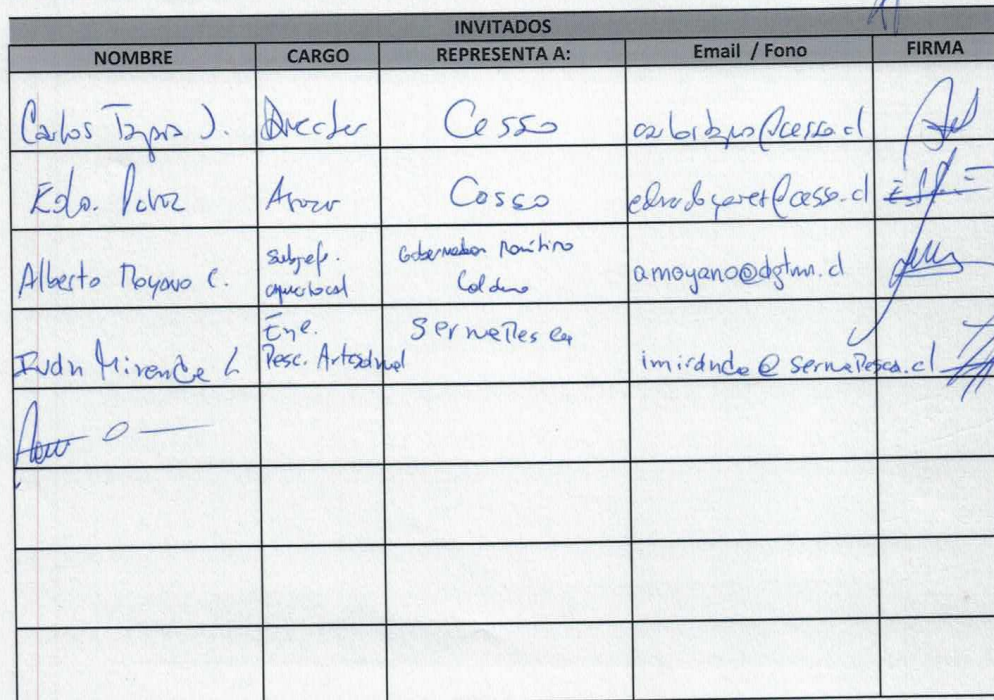 INVITADOS
NOMBRE CARGO REPRESENTA A: Email / Fono FIRMA
Carlos Tapia J. Director Cesso carlostapia@cesso.cl
Edo. Perez Asesor Cesso eduardoperez@cesso.cl
Alberto Moyano C. subjef. Gobernación Marítima Caldera amoyano@dgtmn.cl
Iván Miranda L Enc. Pesc. Artesanal Sernapesca imiranda@sernapesca.cl